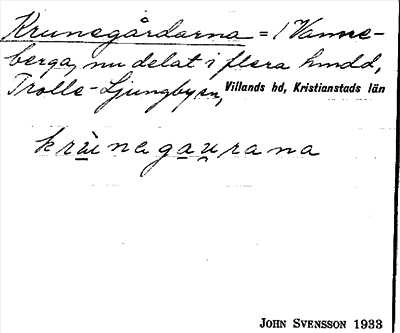 Krunegårdarna = 1 Vanne-
berga, nu delat i flera hmdd,
Trolle-Ljungby sn, Villands hd, Kristianstads län
krùnegaurana
JOHN SVENSSON 1933